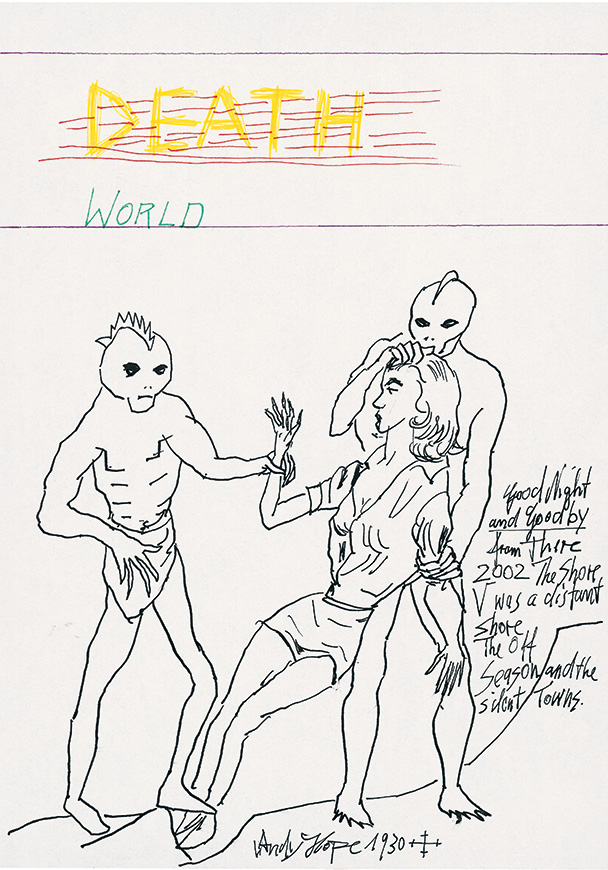 DEATH
WORLD
Good Night
and Goodby
from There
2002 The Shore,
I was a distant
shore
The Off
Season and the
silent Towns.
Andy Hope 1930